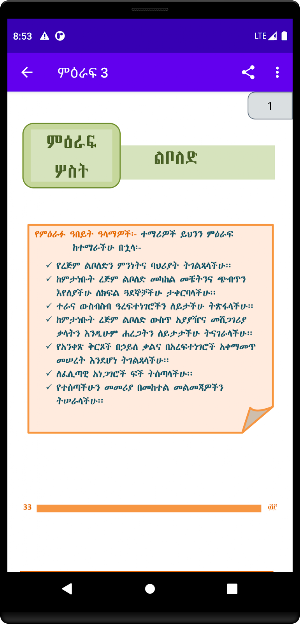 8:53
LTE
ምዕራፍ 3
1
ምዕራፍ
ሦስት
ልቦለድ
የምዕራፉ ዓበይት ዓላማዎች፡- ተማሪዎች ይህንን ምዕራፍ
ከተማራችሁ በኋላ፡-
✓ የረጅም ልቦለድን ምንነትና ባህሪያት ትገልጻላችሁ።
✓ ከምታነቡት ረጅም ልቦለድ መካከል መቼትንና ጭብጥን
እየለያችሁ ለክፍል ጓደኞቻችሁ ታቀርባላችሁ።
✓ ተራና ውስብስብ ዓረፍተነገሮችን ለይታችሁ ትጽፋላችሁ።
✓ ከምታነቡት ረጅም ልቦለድ ውስጥ አያያዥና መሸጋገሪያ
ቃላትን እንዲሁም ሐረጋትን ለይታችሁ ትናገራላችሁ።
✓ የአንቀጽ ቅርጾች በኃይለ ቃልና በአረፍተነገሮች አቀማመጥ
መሠረት እንደሆነ ትገልጻላችሁ።
✓ ለፈሊጣዊ አነጋገሮች ፍች ትሰጣላችሁ።
✓ የተሰጣችሁን መመሪያ በመከተል መልመጃዎችን
ትሠራላችሁ።
33